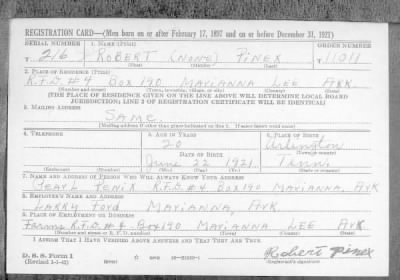 REGISTRATION CARD—(Men born on or after February 17, 1897 and on or before December 31, 1921)
SERIAL NUMBER 1. NAME (Print) ORDER NUMBER
T 216 ROBERT (NONE) PINEX T 11011
(First) (Middle) (Last)
2. PLACE OF RESIDENCE (Print)
R.F.D. #4 Box 190 MARIANNA LEE ARK
(Number and street) (Town, township, village, or city) (County) (State)
[THE PLACE OF RESIDENCE GIVEN ON THE LINE ABOVE WILL DETERMINE LOCAL BOARD
JURISDICTION; LINE 2 OF REGISTRATION CERTIFICATE WILL BE IDENTICAL]
3. MAILING ADDRESS
SAME
[Mailing address if other than place indicated on line 2. If same insert word same]
4. TELEPHONE 5. AGE IN YEARS 6. PLACE OF BIRTH
20 Arlington
DATE OF BIRTH (Town or county)
June 22 1921 Tenn
(Exchange) (Number) (Mo.) (Day) (Yr.) (State or country)
7. NAME AND ADDRESS OF PERSON WHO WILL ALWAYS KNOW YOUR ADDRESS
Pearl Penix R.F.D #4 Box 190 Marianna, Ark
8. EMPLOYER'S NAME AND ADDRESS
LARRY Ford Marianna, Ark
9. PLACE OF EMPLOYMENT OR BUSINESS
Farming R.F.D #4 Box 190 Marianna LEE Ark
(Number and street or R. F. D. number) (Town) (County) (State)
I AFFIRM THAT I HAVE VERIFIED ABOVE ANSWERS AND THAT THEY ARE TRUE.
D. S. S. Form 1
(Revised 1-1-42) (over) Robert Pinex
(Registrant's signature)